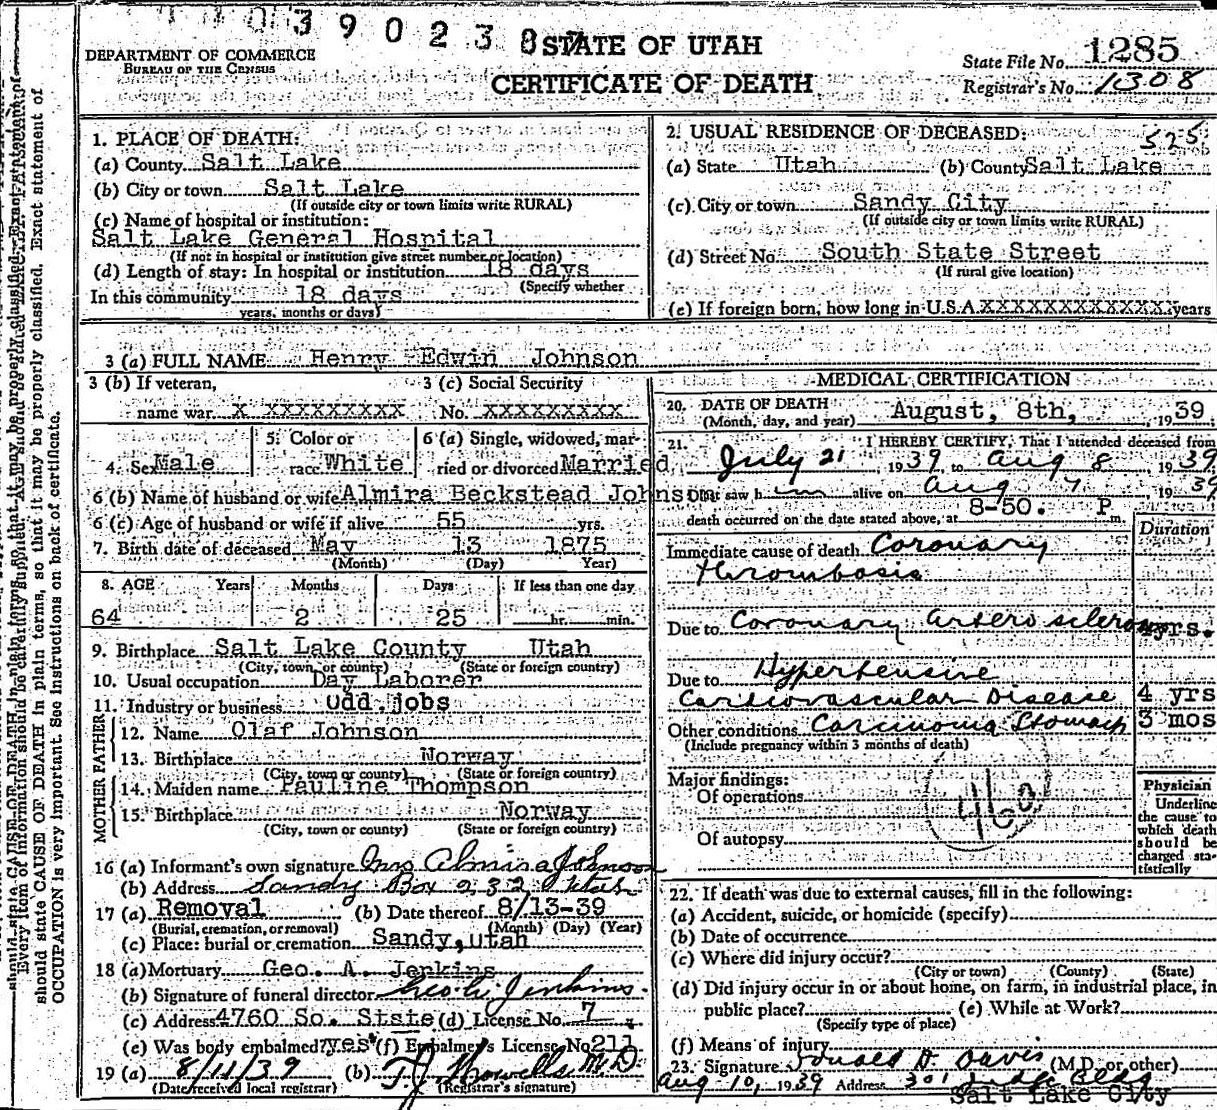 3 9 0 2 3 8
DEPARTMENT OF COMMERCE
BUREAU OF THE CENSUS
STATE OF UTAH
CERTIFICATE OF DEATH
State File No. 1285
Registrar's No. 1308
1. PLACE OF DEATH:
(a) County Salt Lake
(b) City or town Salt Lake
(If outside city or town limits write RURAL)
(c) Name of hospital or institution:
Salt Lake General Hospital
(If not in hospital or institution give street number or location)
(d) Length of stay: In hospital or institution 18 days
(Specify whether
In this community 18 days
years, months or days)
2. USUAL RESIDENCE OF DECEASED: 525
(a) State Utah (b) County Salt Lake
(c) City or town Sandy City
(If outside city or town limits write RURAL)
(d) Street No. South State Street
(If rural give location)
(e) If foreign born, how long in U.S.A. XXXXXXXXXXXXX years
3 (a) FULL NAME Henry Edwin Johnson
3 (b) If veteran, 3 (c) Social Security
name war X XXXXXXXXX No. XXXXXXXXX
4. Sex Male 5. Color or race White 6 (a) Single, widowed, married or divorced Married
6 (b) Name of husband or wife Almira Beckstead Johnson
6 (c) Age of husband or wife if alive 55 yrs.
7. Birth date of deceased May 13 1875
(Month) (Day) Year)
8. AGE Years Months Days If less than one day
64 2 25 hr. min.
9. Birthplace Salt Lake County Utah
(City, town, or county) (State or foreign country)
10. Usual occupation Day Laborer
11. Industry or business Odd jobs
FATHER
12. Name Olaf Johnson
13. Birthplace Norway
(City, town or county) (State or foreign country)
MOTHER
14. Maiden name Pauline Thompson
15. Birthplace Norway
(City, town or county) (State or foreign country)
16 (a) Informant's own signature Mrs Almira Johnson
(b) Address Sandy Box 232 Utah
17 (a) Removal (b) Date thereof 8/13-39
(Burial, cremation, or removal) (Month) (Day) (Year)
(c) Place: burial or cremation Sandy, Utah
18 (a) Mortuary Geo. A. Jenkins
(b) Signature of funeral director Geo. A. Jenkins.
(c) Address 4760 So. State (d) License No. 7
(e) Was body embalmed? yes (f) Embalmer's License No. 211
19 (a) 8/11/39 (b) T J Howells M.D.
(Date received local registrar) (Registrar's signature)
MEDICAL CERTIFICATION
20. DATE OF DEATH August, 8th, 1939
(Month, day, and year)
21. I HEREBY CERTIFY, That I attended deceased from
July 21, 1939, to Aug 8 1939
that saw h im alive on Aug 7 1939
death occurred on the date stated above, at 8-50. P m.
Duration
Immediate cause of death Coronary
thrombosis
Due to Coronary arterosclerosis yrs.
Due to Hypertensive
Cardiovascular Disease 4 yrs
Other conditions Carcinoma Stomach 3 mos
(Include pregnancy within 3 months of death)
Major findings:
Of operations
Of autopsy
Physician
Underline
the cause to
which death
should be
charged sta-
tistically
22. If death was due to external causes, fill in the following:
(a) Accident, suicide, or homicide (specify)
(b) Date of occurrence
(c) Where did injury occur?
(City or town) (County) (State)
(d) Did injury occur in or about home, on farm, in industrial place, in
public place? (e) While at Work?
(Specify type of place)
(f) Means of injury
23. Signature Donald D. Davis (M.D. or other)
Aug 10, 1939 Address 301 Judge Bldg
Salt Lake City
should state CAUSE OF DEATH in plain terms, so that it may be properly classified. Exact statement of
OCCUPATION is very important. See instructions on back of certificate.